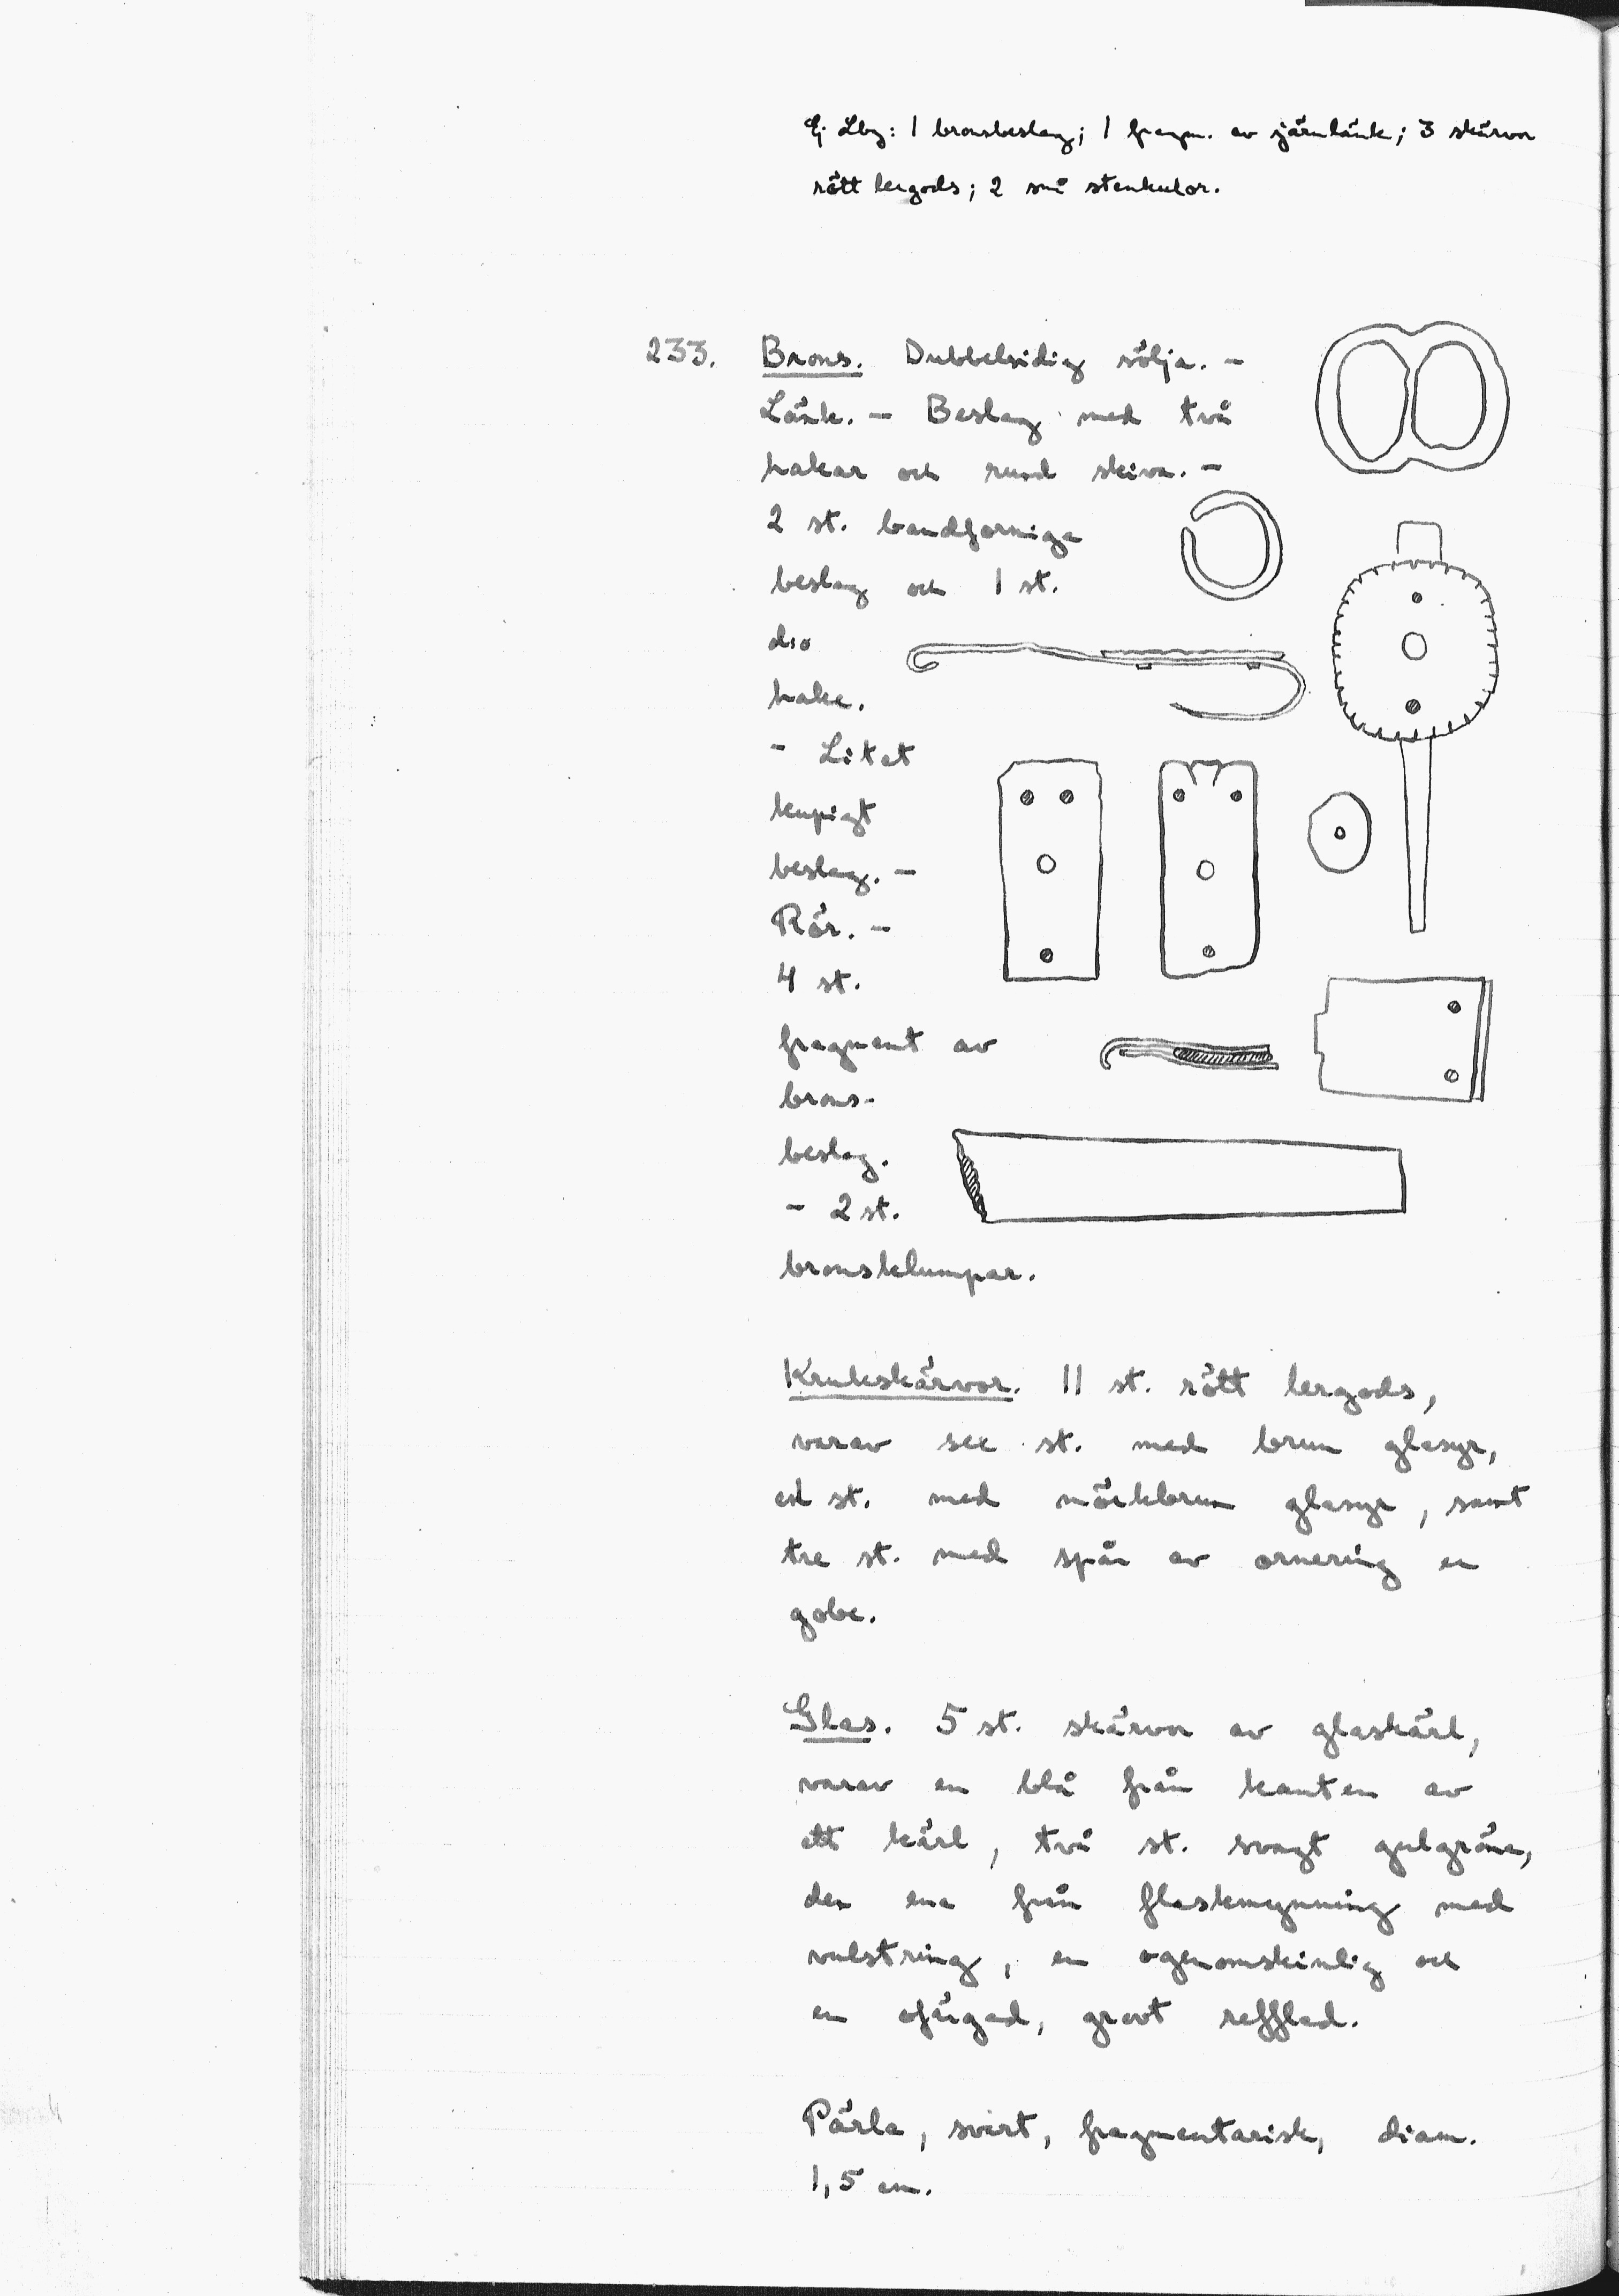 Ej Lbg: 1 bronsbeslag; 1 fragm. av järnlänk; 3 skärvor
rött lergods; 2 små stenkulor.
233. Brons. Dubbelsidig sölja. –
Länk. – Beslag med två
hakar och rund skiva. –
2 st. bandformiga
beslag och 1 st.
d:o
hake.
– Litet
kupigt
beslag. –
Rör. –
4 st.
fragment av
brons-
beslag.
– 2 st.
bronsklumpar.
Krukskärvor. 11 st. rött lergods,
varav sex st. med brun glasyr,
ett st. med mörkbrun glasyr, samt
tre st. med spår av ornering en
gobe.
Glas. 5 st. skärvor av glaskärl,
varav en blå från kanten av
ett kärl, två st. svagt gulgröna,
den ena från flaskmynning med
vulstring, en ogenomskinlig och
en ofärgad, grovt refflad.
Pärla, svart, fragmentarisk, diam.
1,5 cm.